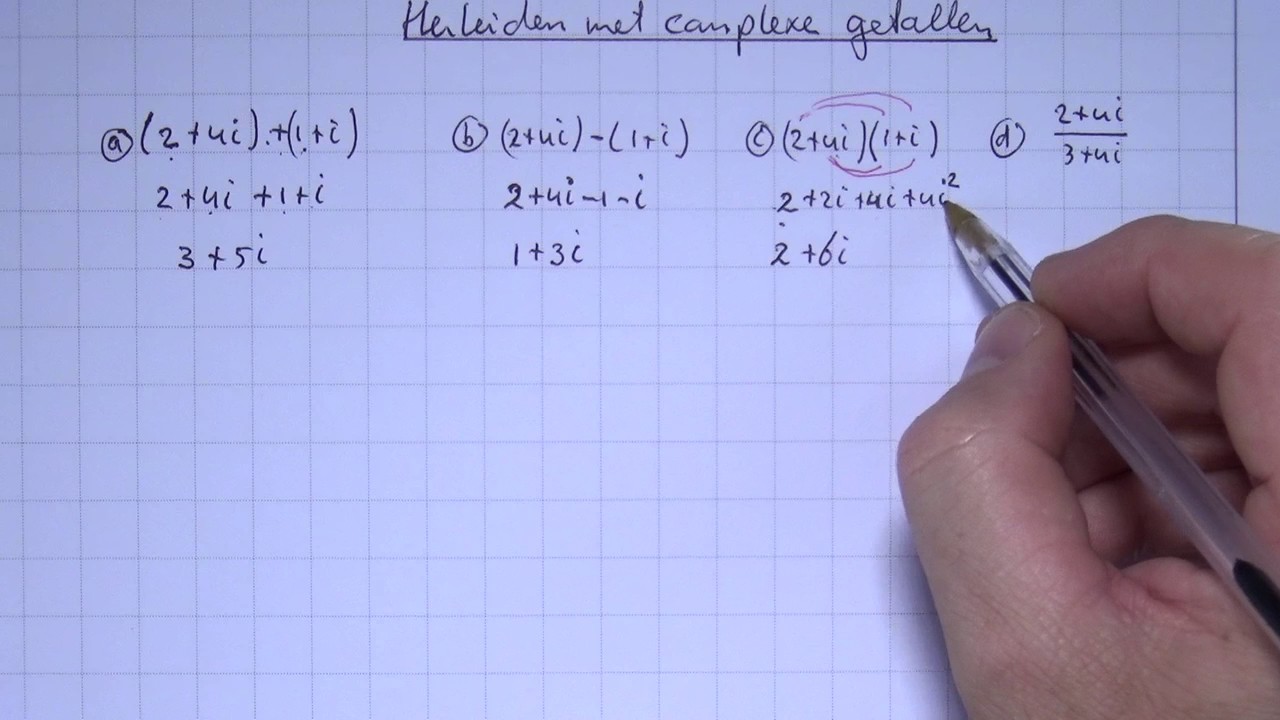 Herleiden met complexe getallen
a (2+4i)+(1+i)
2+4i+1+i
3+5i
b (2+4i)-(1+i)
2+4i-1-i
1+3i
c (2+4i)(1+i)
2+2i+4i+4i²
2+6i
d 2+4i
3+4i